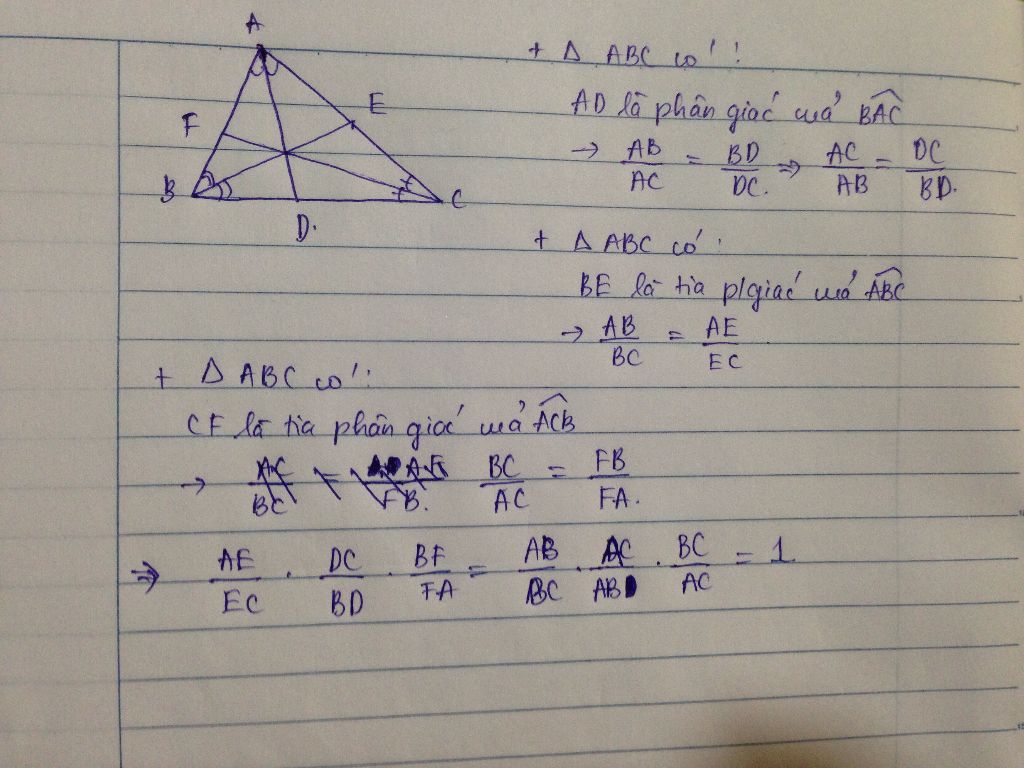 A
F
E
B
D.
C
+ Δ ABC có :
AD là phân giác của \widehat{BAC}
→ \frac{AB}{AC} = \frac{BD}{DC.} ⇒ \frac{AC}{AB} = \frac{DC}{BD.}
+ Δ ABC có :
BE là tia p/giác của \widehat{ABC}
→ \frac{AB}{BC} = \frac{AE}{EC}
+ Δ ABC có :
CF là tia phân giác của \widehat{ACB}
→ \frac{BC}{AC} = \frac{FB}{FA.}
⇒ \frac{AE}{EC} . \frac{DC}{BD} . \frac{BF}{FA} = \frac{AB}{BC} . \frac{AC}{AB} . \frac{BC}{AC} = 1